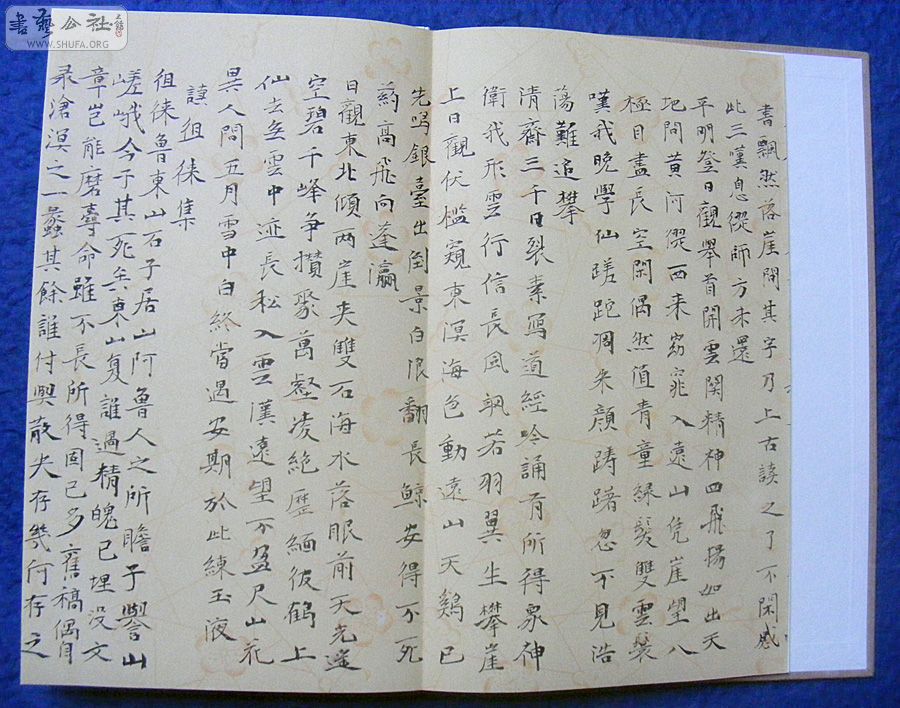 書藝公社
WWW.SHUFA.ORG
書飄然落崖間其字乃上古讀之了不閑感
此三嘆息從師方未還
平明登日觀舉首開雲關精神四飛揚如出天
地間黃河從西來窈窕入遠山凭崖望八
極目盡長空閑偶然值青童綠髮雙雲鬟
嘆我晚學仙蹉跎凋朱顏躊躇忽不見浩
蕩難追攀
清齋三千日裂素寫道經吟誦有所得眾神
衛我形雲行信長風颯若羽翼生攀崖
上日觀伏檻窺東溟海色動遠山天鷄已
先鳴銀臺出倒景白浪翻長鯨安得不死
葯高飛向蓬瀛
日觀東北傾兩崖夾雙石海水落眼前天光遙
空碧千峰爭攢聚萬壑凌絕歷緬彼鶴上
仙去無雲中迹長松入雲漢遠望不盈尺山花
異人間五月雪中白終當遇安期於此練玉液
讀徂徠集
徂徠魯東山石子居山阿魯人之所瞻子譽山
嵯峨今子其死矣東山復誰過精魄已埋沒文
章豈能磨壽命雖不長所得固已多舊稿偶自
录滄溟之一蠡其餘誰付與散失存幾何存之